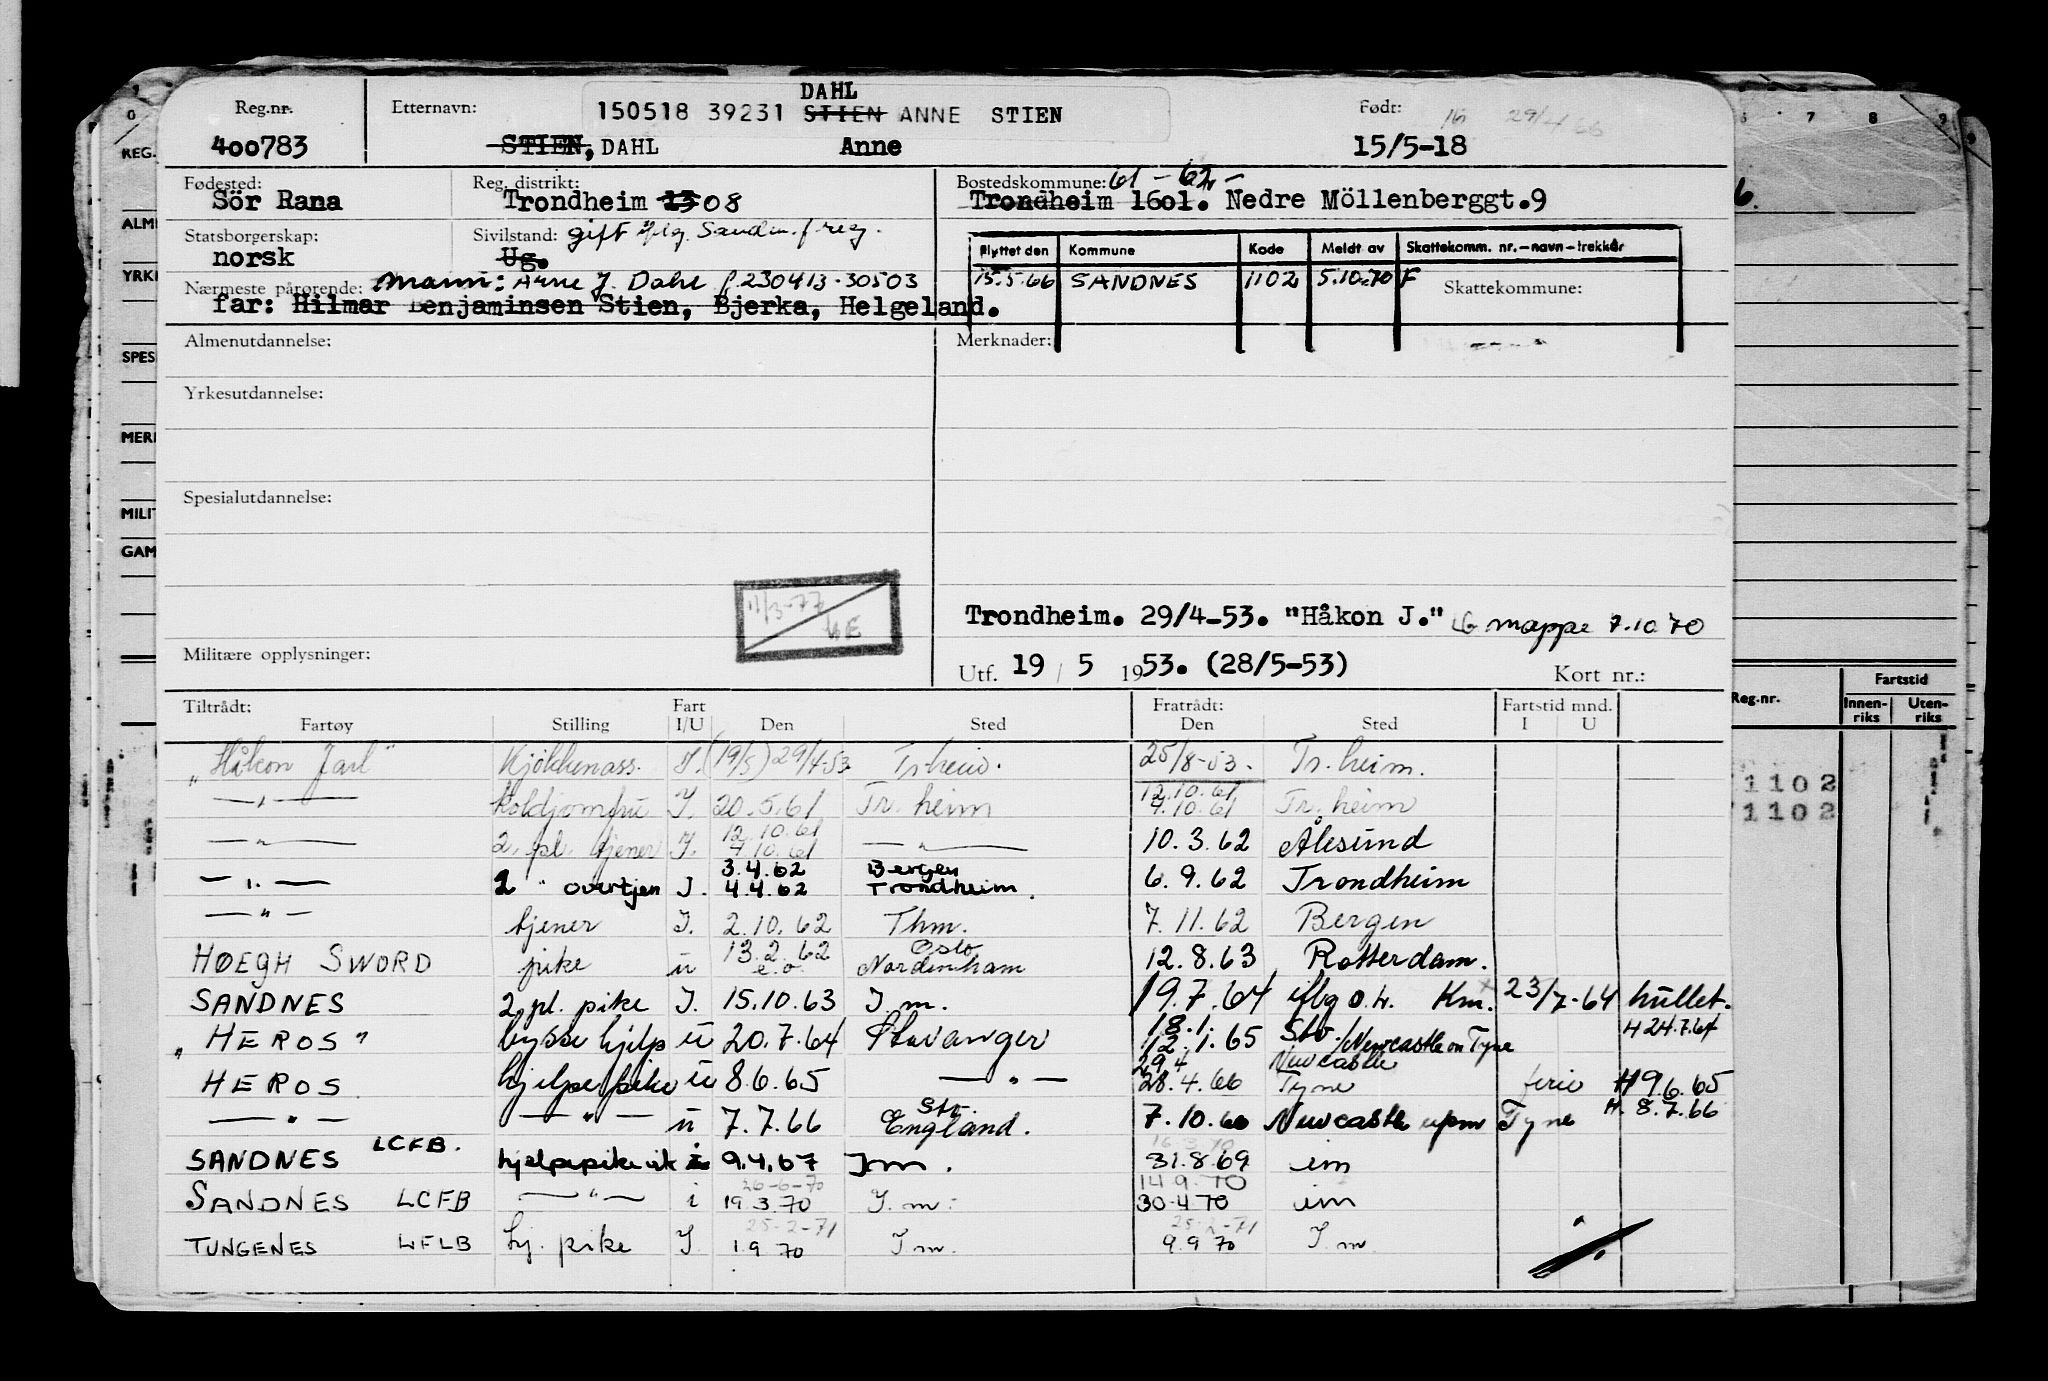 DAHL
Reg.nr. Etternavn: 150518 39231 STIEN ANNE STIEN Født: 29/4-66
400783 STIEN, DAHL Anne 15/5-18
Fødested: Reg. distrikt: Bostedskommune: 61 - 62 -
Sör Rana Trondheim 13 08 Trondheim 1601. Nedre Möllenberggt.9
Statsborgerskap: Sivilstand: gift iflg. Sandn. f.reg.
norsk Ug.
Flyttet den Kommune Kode Meldt av Skattekomm. nr.-navn-trekkår
15.5.66 SANDNES 1102 5.10.70 F Skattekommune:
Nærmeste pårørende: Mann: Arne J. Dahl f. 230413-30503
far: Hilmar Benjaminsen Stien, Bjerka, Helgeland.
Almenutdannelse: Merknader:
Yrkesutdannelse:
Spesialutdannelse:
11/3-77
Trondheim. 29/4-53. "Håkon J." mappe 7.10.70
Militære opplysninger: Utf. 19 / 5 1953. (28/5-53) Kort nr.:
Tiltrådt: Fart Fratrådt: Fartstid mnd.
Fartøy Stilling I/U Den Sted Den Sted I U
"Håkon Jarl" Kjökkenass. I. (19/5) 29/4-53 Tr.heim. 25/8-53. Tr.heim.
12.10.61
— " — Koldjomfru I. 20.5.61 Tr.heim 7.10.61 Tr.heim
12.10.61
— " — 2. pl. tjener I. 7.10.61 — " — 10.3.62 Ålesund
3.4.62 Bergen
— " — 2 " overtjen I. 4.4.62 Trondheim. 6.9.62 Trondheim
— " — tjener I. 2.10.62 Thm. 7.11.62 Bergen
13.2.62 Oslo
HØEGH SWORD pike u e.o. Nordenham 12.8.63 Rotterdam.
SANDNES 2. pl. pike I. 15.10.63 I.m. 19.7.64 iflg o.h. Hm. 23/7-64 hullet.
18.1. H 24.7.64
"HEROS" bysse hjelp u 20.7.64 Stavanger 12.1.65 Stv./Newcastle on Tyne
29.4 Newcastle
HEROS hjelpe pike u 8.6.65 — " — 28.4.66 Tyne ferie H 9.6.65
Stv. H. 8.7.66
— " — — " — u 7.7.66 England. 7.10.66 Newcastle upon Tyne
16.3.70
SANDNES LCFB. hjelpepike vik i 9.4.67 I m. 31.8.69 im
26-6-70 14.9.70
SANDNES LCFB — " — i 19.3.70 I.m. 30.4.70 im
25-2-71 25-2-71
TUNGENES LFLB hj. pike I 1.9 70 I m. 9.9 70 I.m
REG.
ALM
YRK
SPES
MERI
MILIT
GAM
6 7 8 9
Reg.nr. Fartstid
Innen-riks Uten-riks
1102
1102